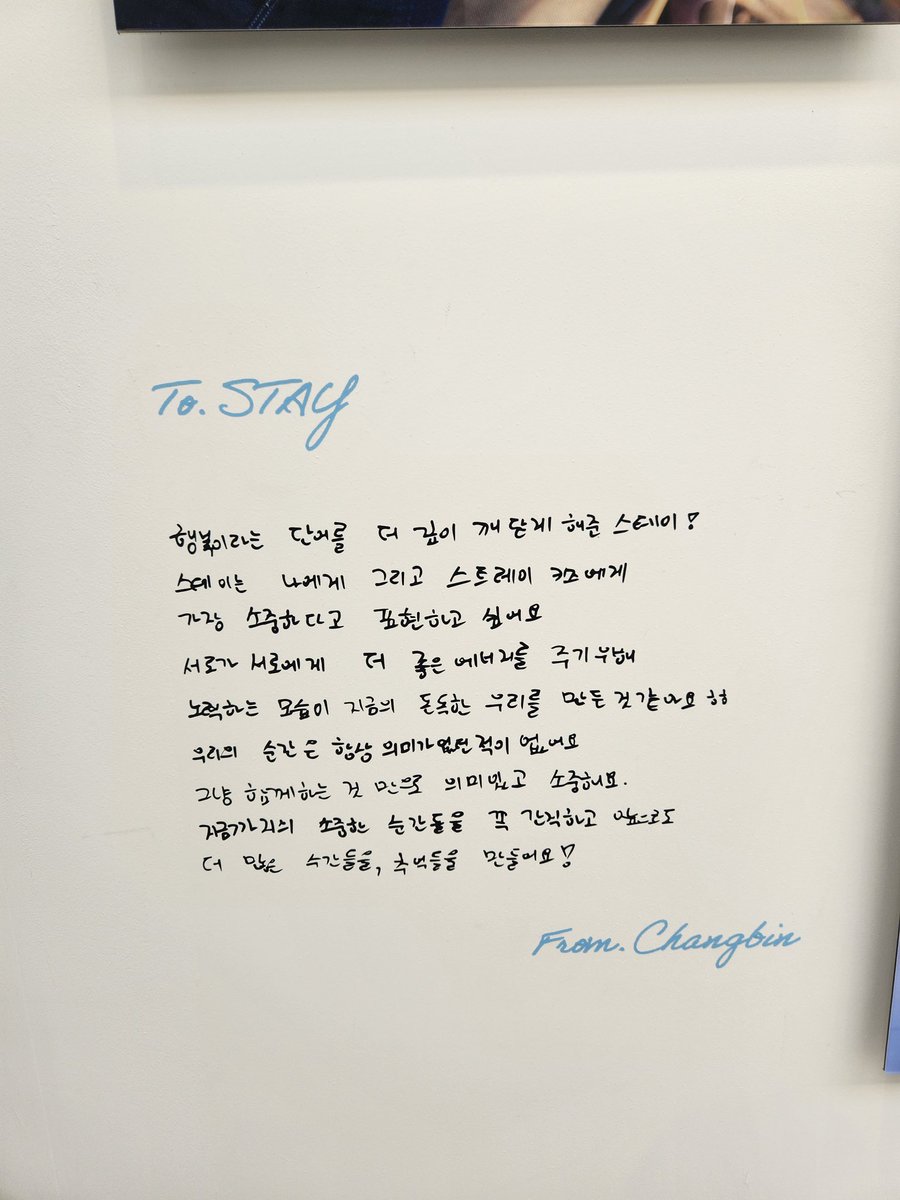 To. STAY
행복이라는 단어를 더 깊이 깨닫게 해준 스테이!
스테이는 나에게 그리고 스트레이 키즈에게
가장 소중하다고 표현하고 싶어요
서로가 서로에게 더 좋은 에너지를 주기위해
노력하는 모습이 지금의 돈독한 우리를 만든 것 같아요 ㅎㅎ
우리의 순간은 항상 의미가 없던 적이 없어요
그냥 함께하는 것 만으로 의미있고 소중해요.
지금까지의 소중한 순간들을 꼭 간직하고 앞으로도
더 많은 순간들을, 추억들을 만들어요!
From. Changbin